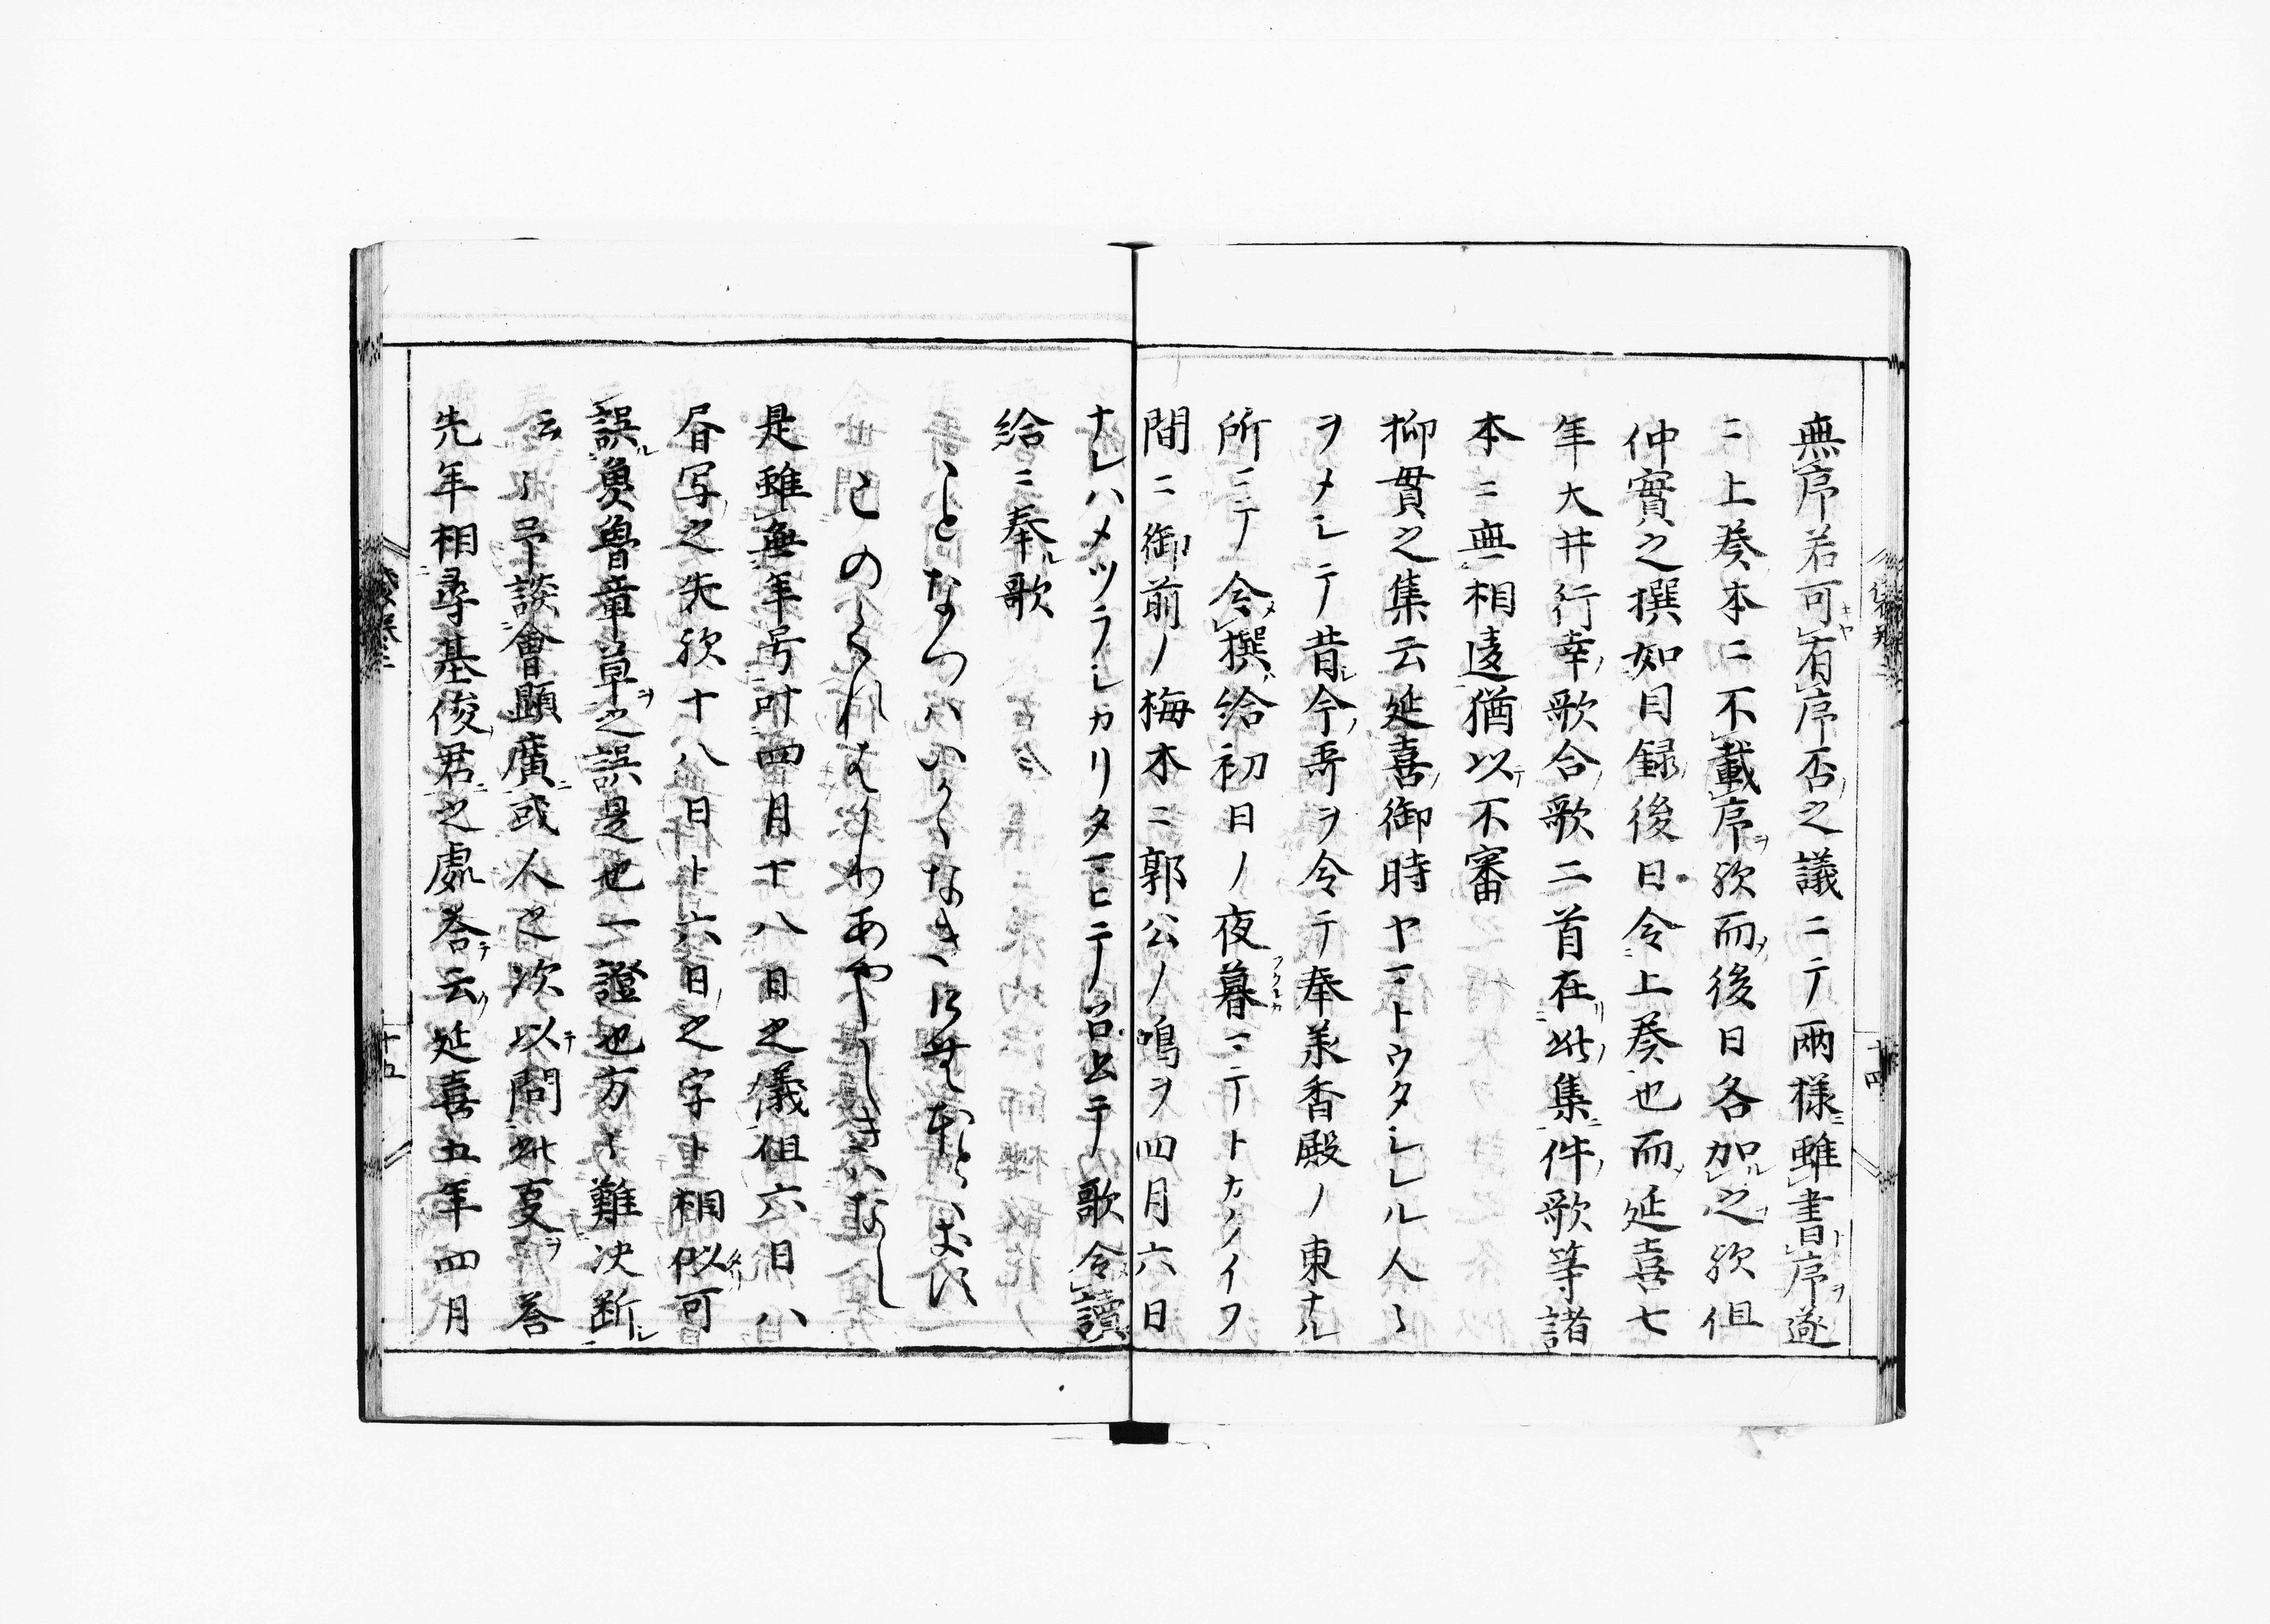 無序若可有序否之議ニテ両様雖書序遂
ニ上奏本ニ不載序欤而後日各加之欤但
仲實之撰如目録後日令上奏也而延喜七
年大井行幸歌合歌二首在此集件歌等諸
本ニ無相違猶以不審
抑貫之集云延喜御時ヤマトウタシレル人々
ヲメシテ昔今哥ヲ令テ奉義香殿ノ東ナル
所ニテ令撰給初日ノ夜暮マテトカノイフ
間ニ御前ノ梅木ニ郭公ノ鳴ヲ四月六日
ナレハメツラシカリタマヒテ召上テ歌令讀
給ニ奉歌
ことなつはいかゝなき
このくれはかりあやしきはなし
是雖無年号付四月十八日之儀但六日八
昏写之失欤十八日ト六日之字ト相似可
誤魚魯章草之誤是也一證也方々難决断
云々予談會顕廣或人之次以問此㕝答
先年相尋基俊君之處答云延喜五年四月
十四
十五